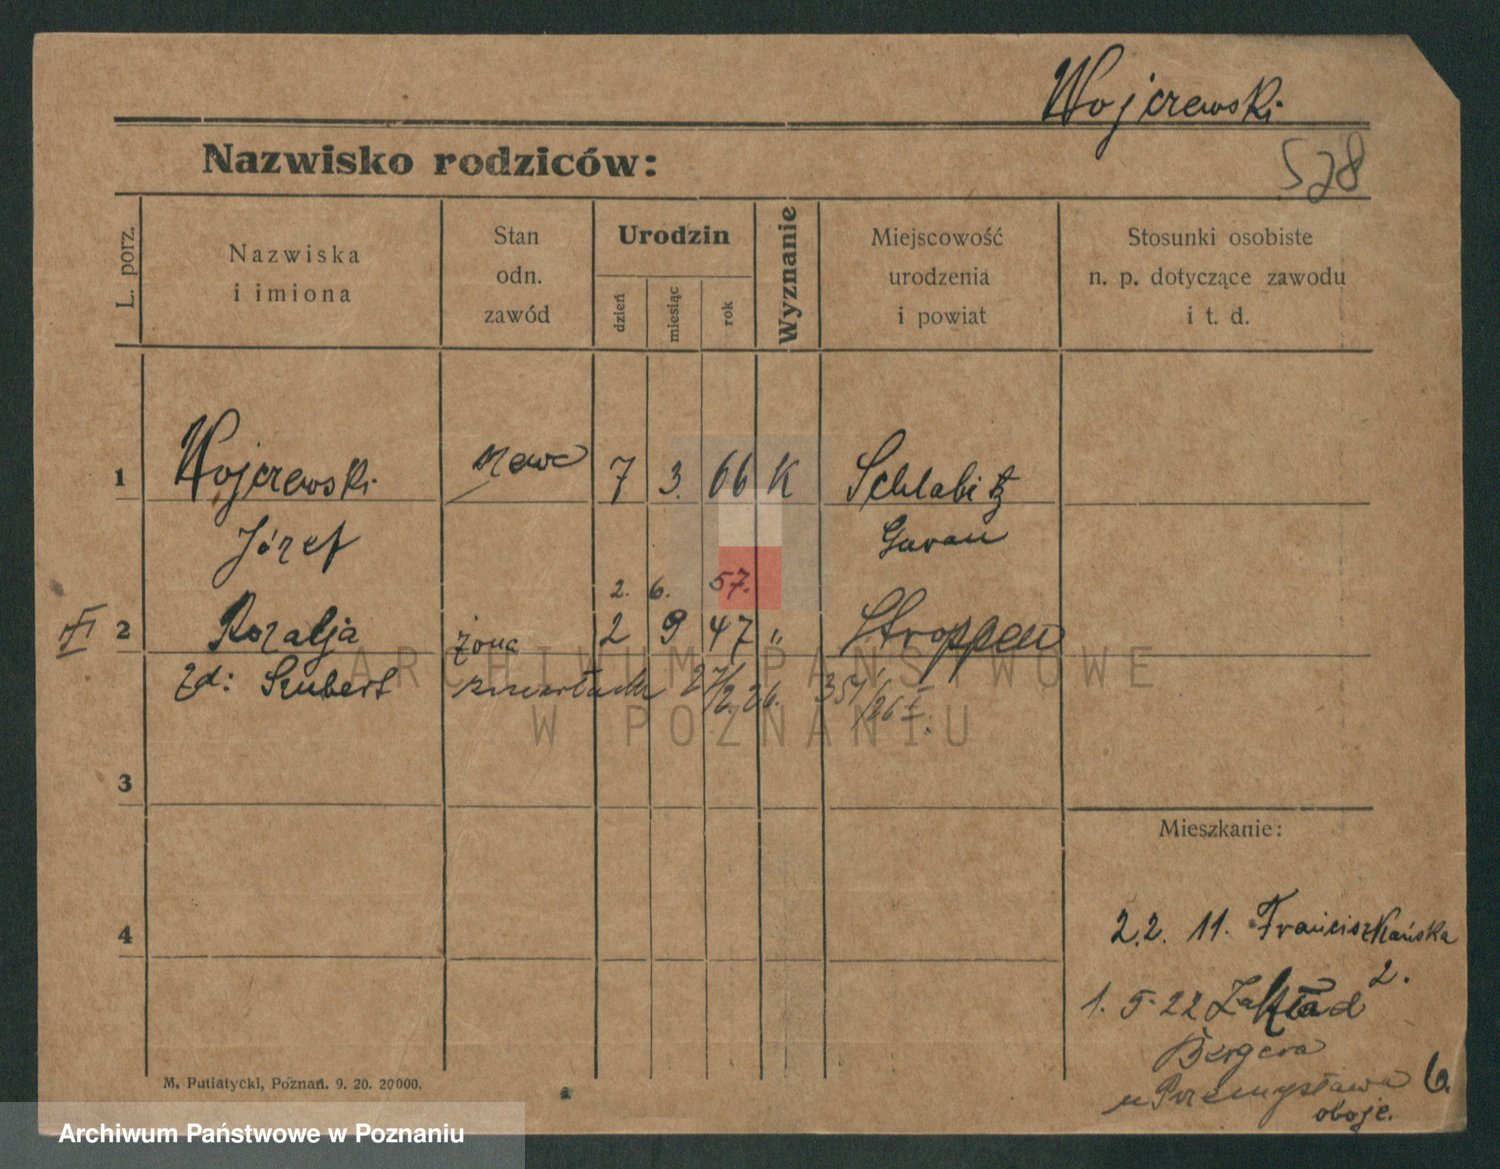 Wojczewski
578
Nazwisko rodziców:
L. porz.
Nazwiska
i imiona
Stan
odn.
zawód
Urodzin
dzień
miesiąc
rok
Wyznanie
Miejscowość
urodzenia
i powiat
Stosunki osobiste
n. p. dotyczące zawodu
i t. d.
1 Wojczewski szewc 7 3. 66 K Schlabitz
Józef Gurau
2. 6. 57.
2 Rozalja żona 2 9 47 " Stroppen
zd: Szubert 27/2. 26. 351/26
ARCHIWUM PAŃSTWOWE
W POZNANIU
3
Mieszkanie:
4
2.2. 11. Franciszkańska
2.
1. 5. 22 Zakład
Bergera
Przemysława 6.
oboje.
M. Putiatycki, Poznań. 9. 20. 20000.
Archiwum Państwowe w Poznaniu